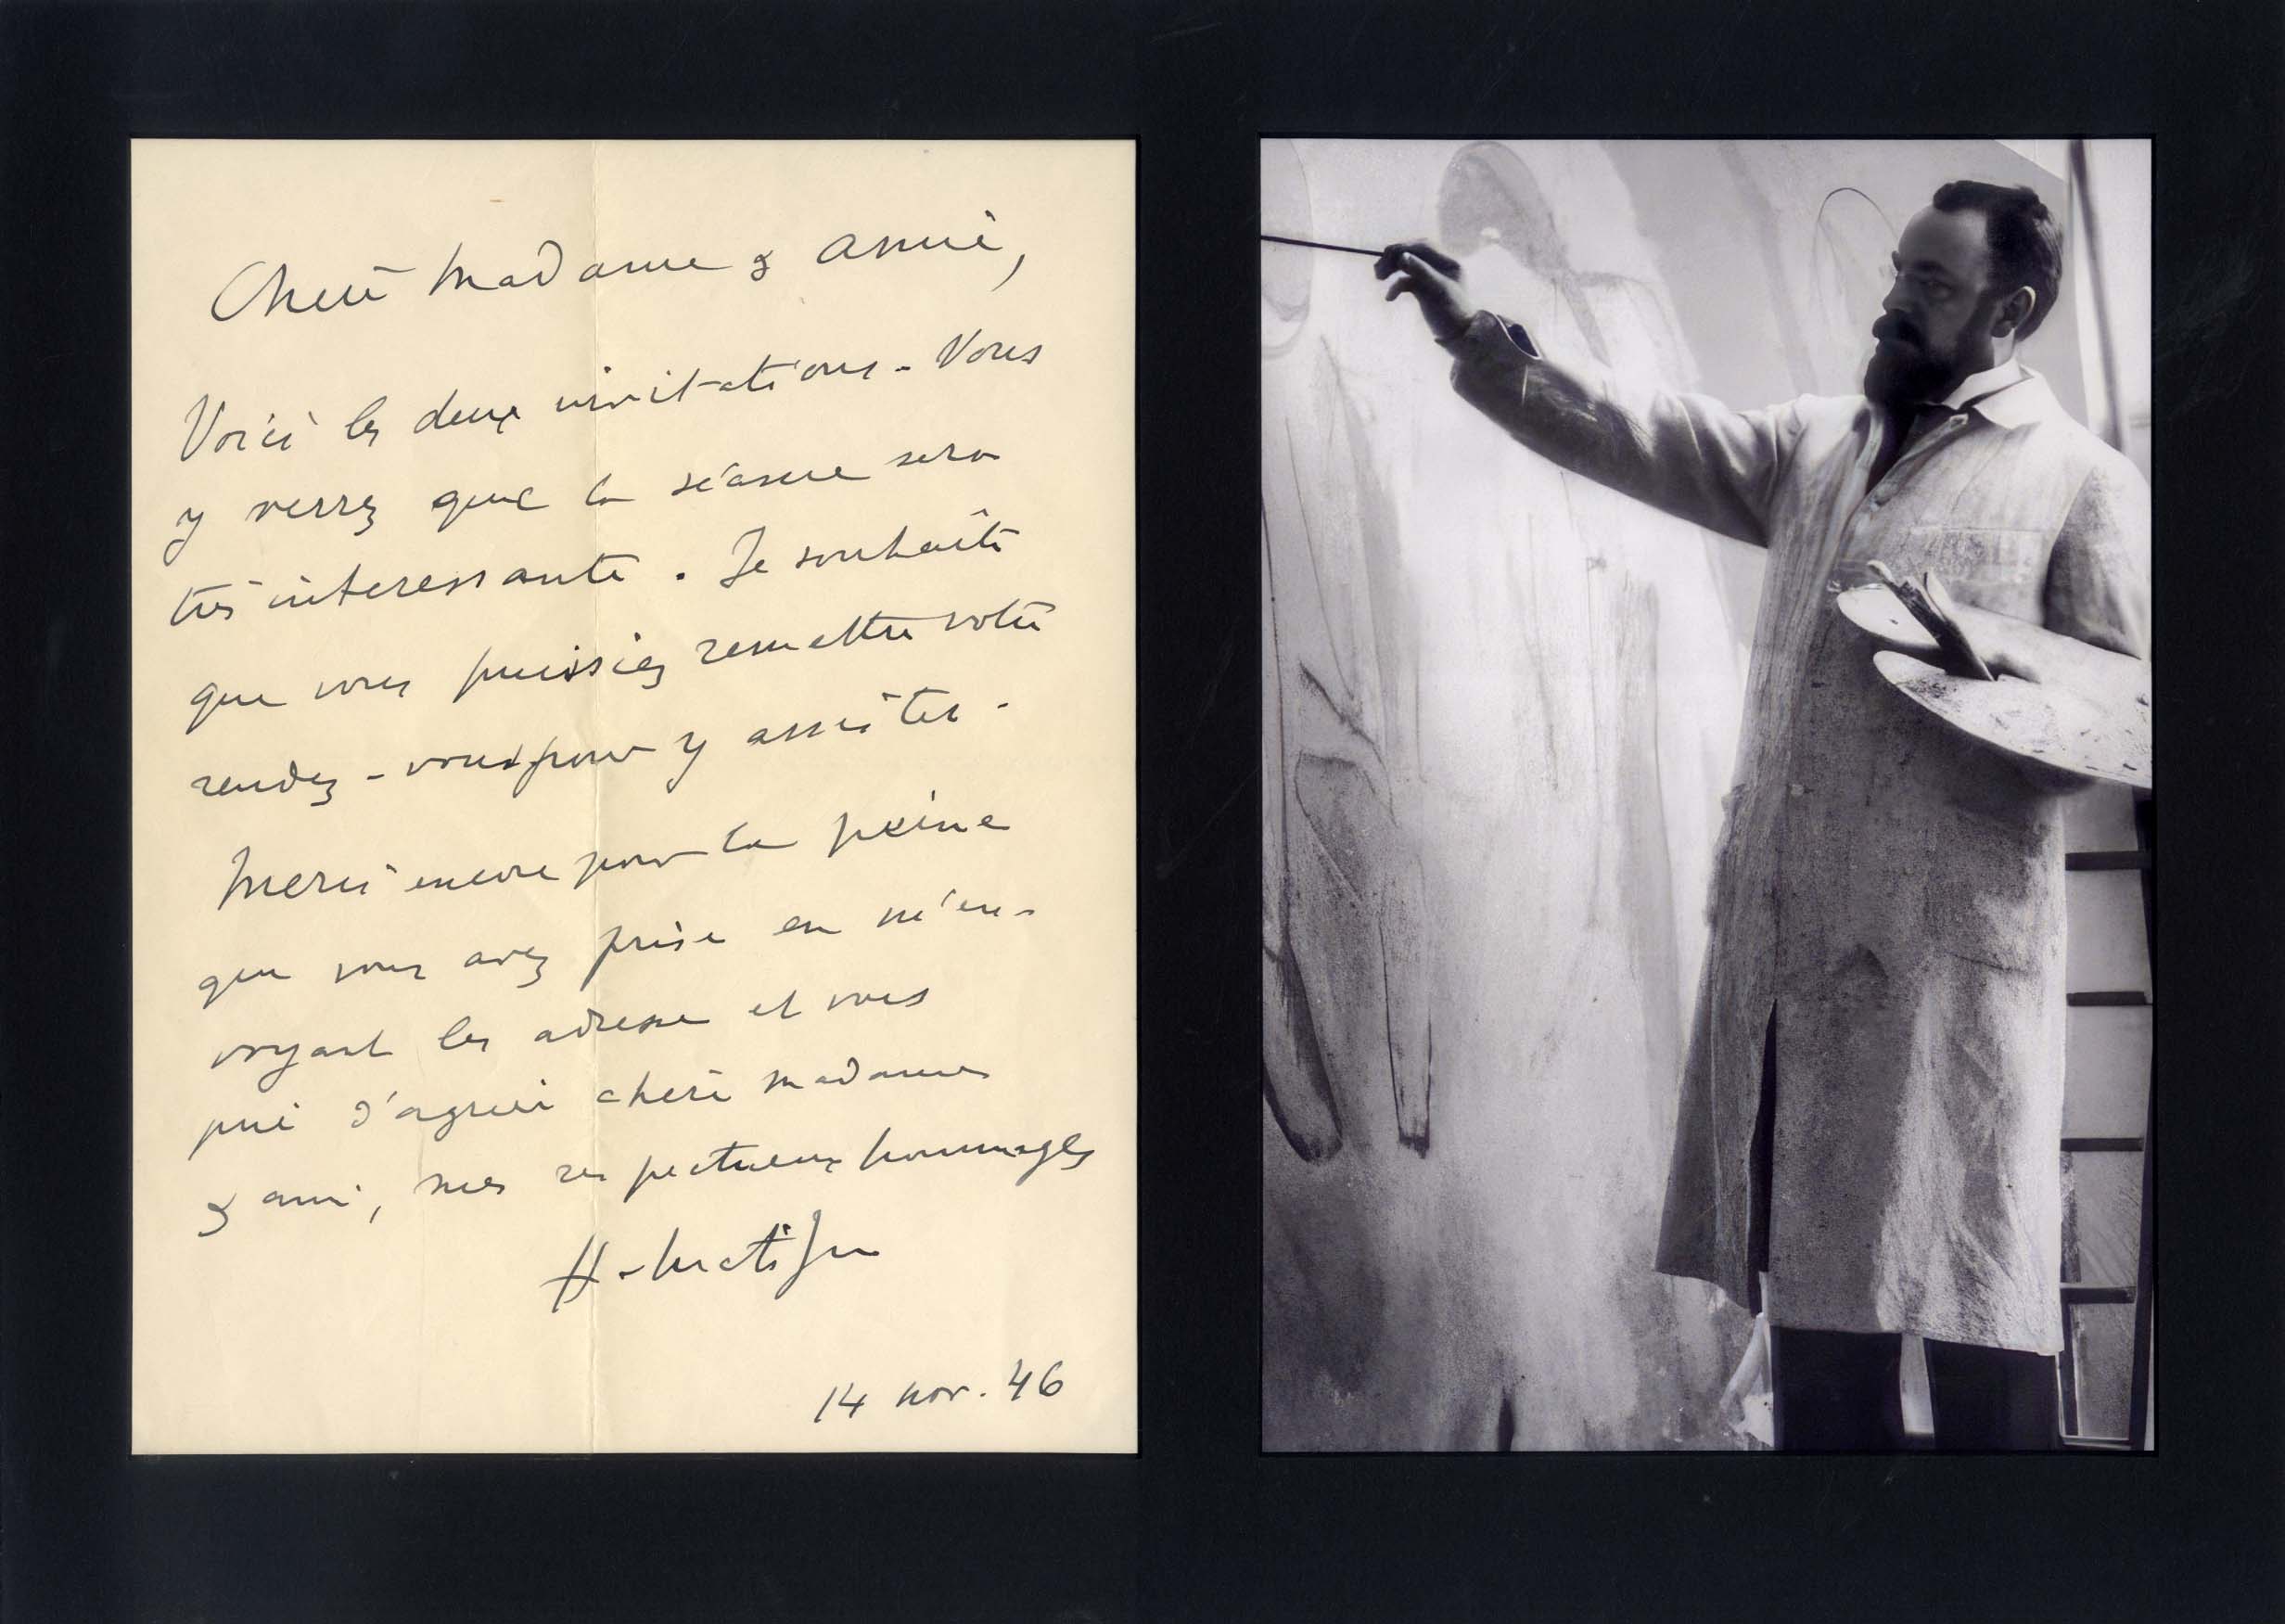 Chère Madame & amie,
Voici les deux invitations - Vous
y verrez que la séance sera
très interessante. Je souhaite
que vous puissiez remettre votre
rendez-vous pour y assister -
Merci encore pour la peine
que vous avez prise en m'en-
voyant les adresse et vous
prie d'agréer chère madame
& amie, mes respectueux hommages
H. Matisse
14 nov. 46